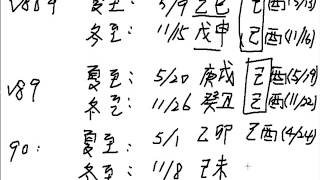 夏至 5/9 乙巳 己酉(5/13)
冬至 11/15 戊申 己酉(11/16)
√89 夏至 5/20 庚戌 己酉(5/19)
冬至 11/26 癸丑 己酉(11/22)
90: 夏至 5/1 乙卯 己酉(4/24)
冬至 11/8 己未